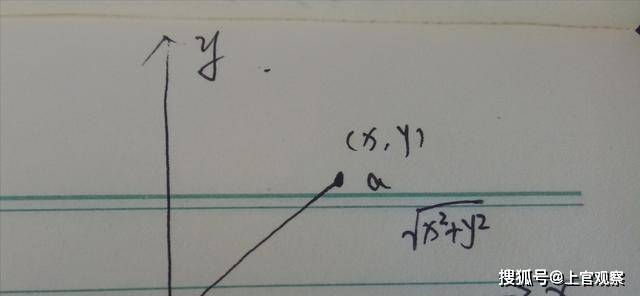 y
(x, y)
a
√x²+y²
搜狐号@上官观察